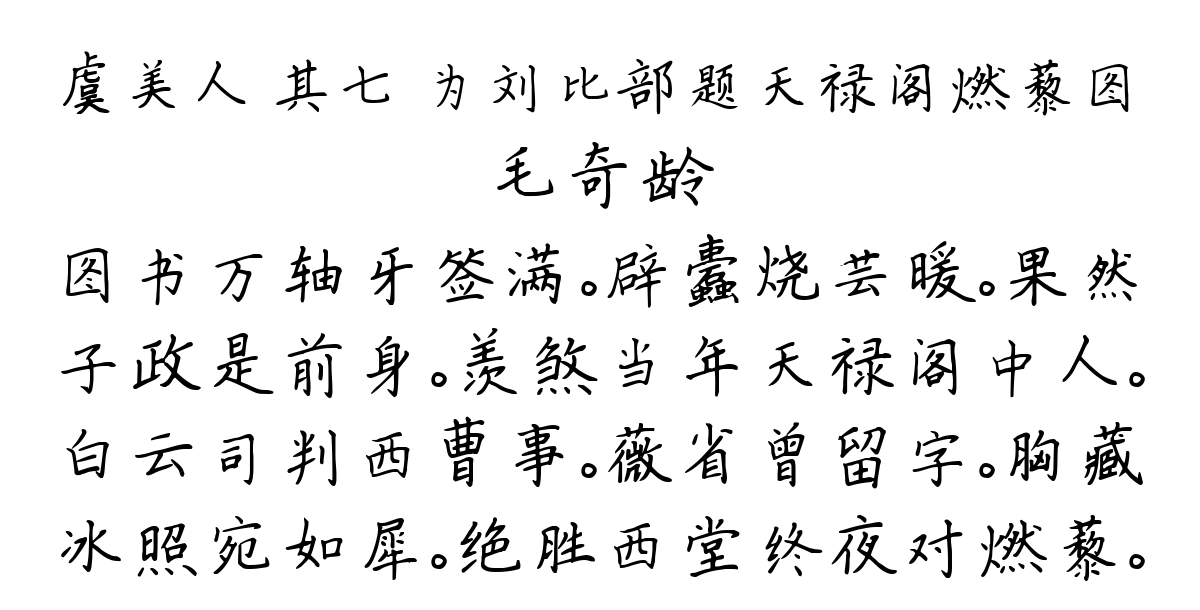 虞美人 其七 为刘比部题天禄阁燃藜图
毛奇龄
图书万轴牙签满。辟蠹烧芸暖。果然
子政是前身。羡煞当年天禄阁中人。
白云司判西曹事。薇省曾留字。胸藏
冰照宛如犀。绝胜西堂终夜对燃藜。